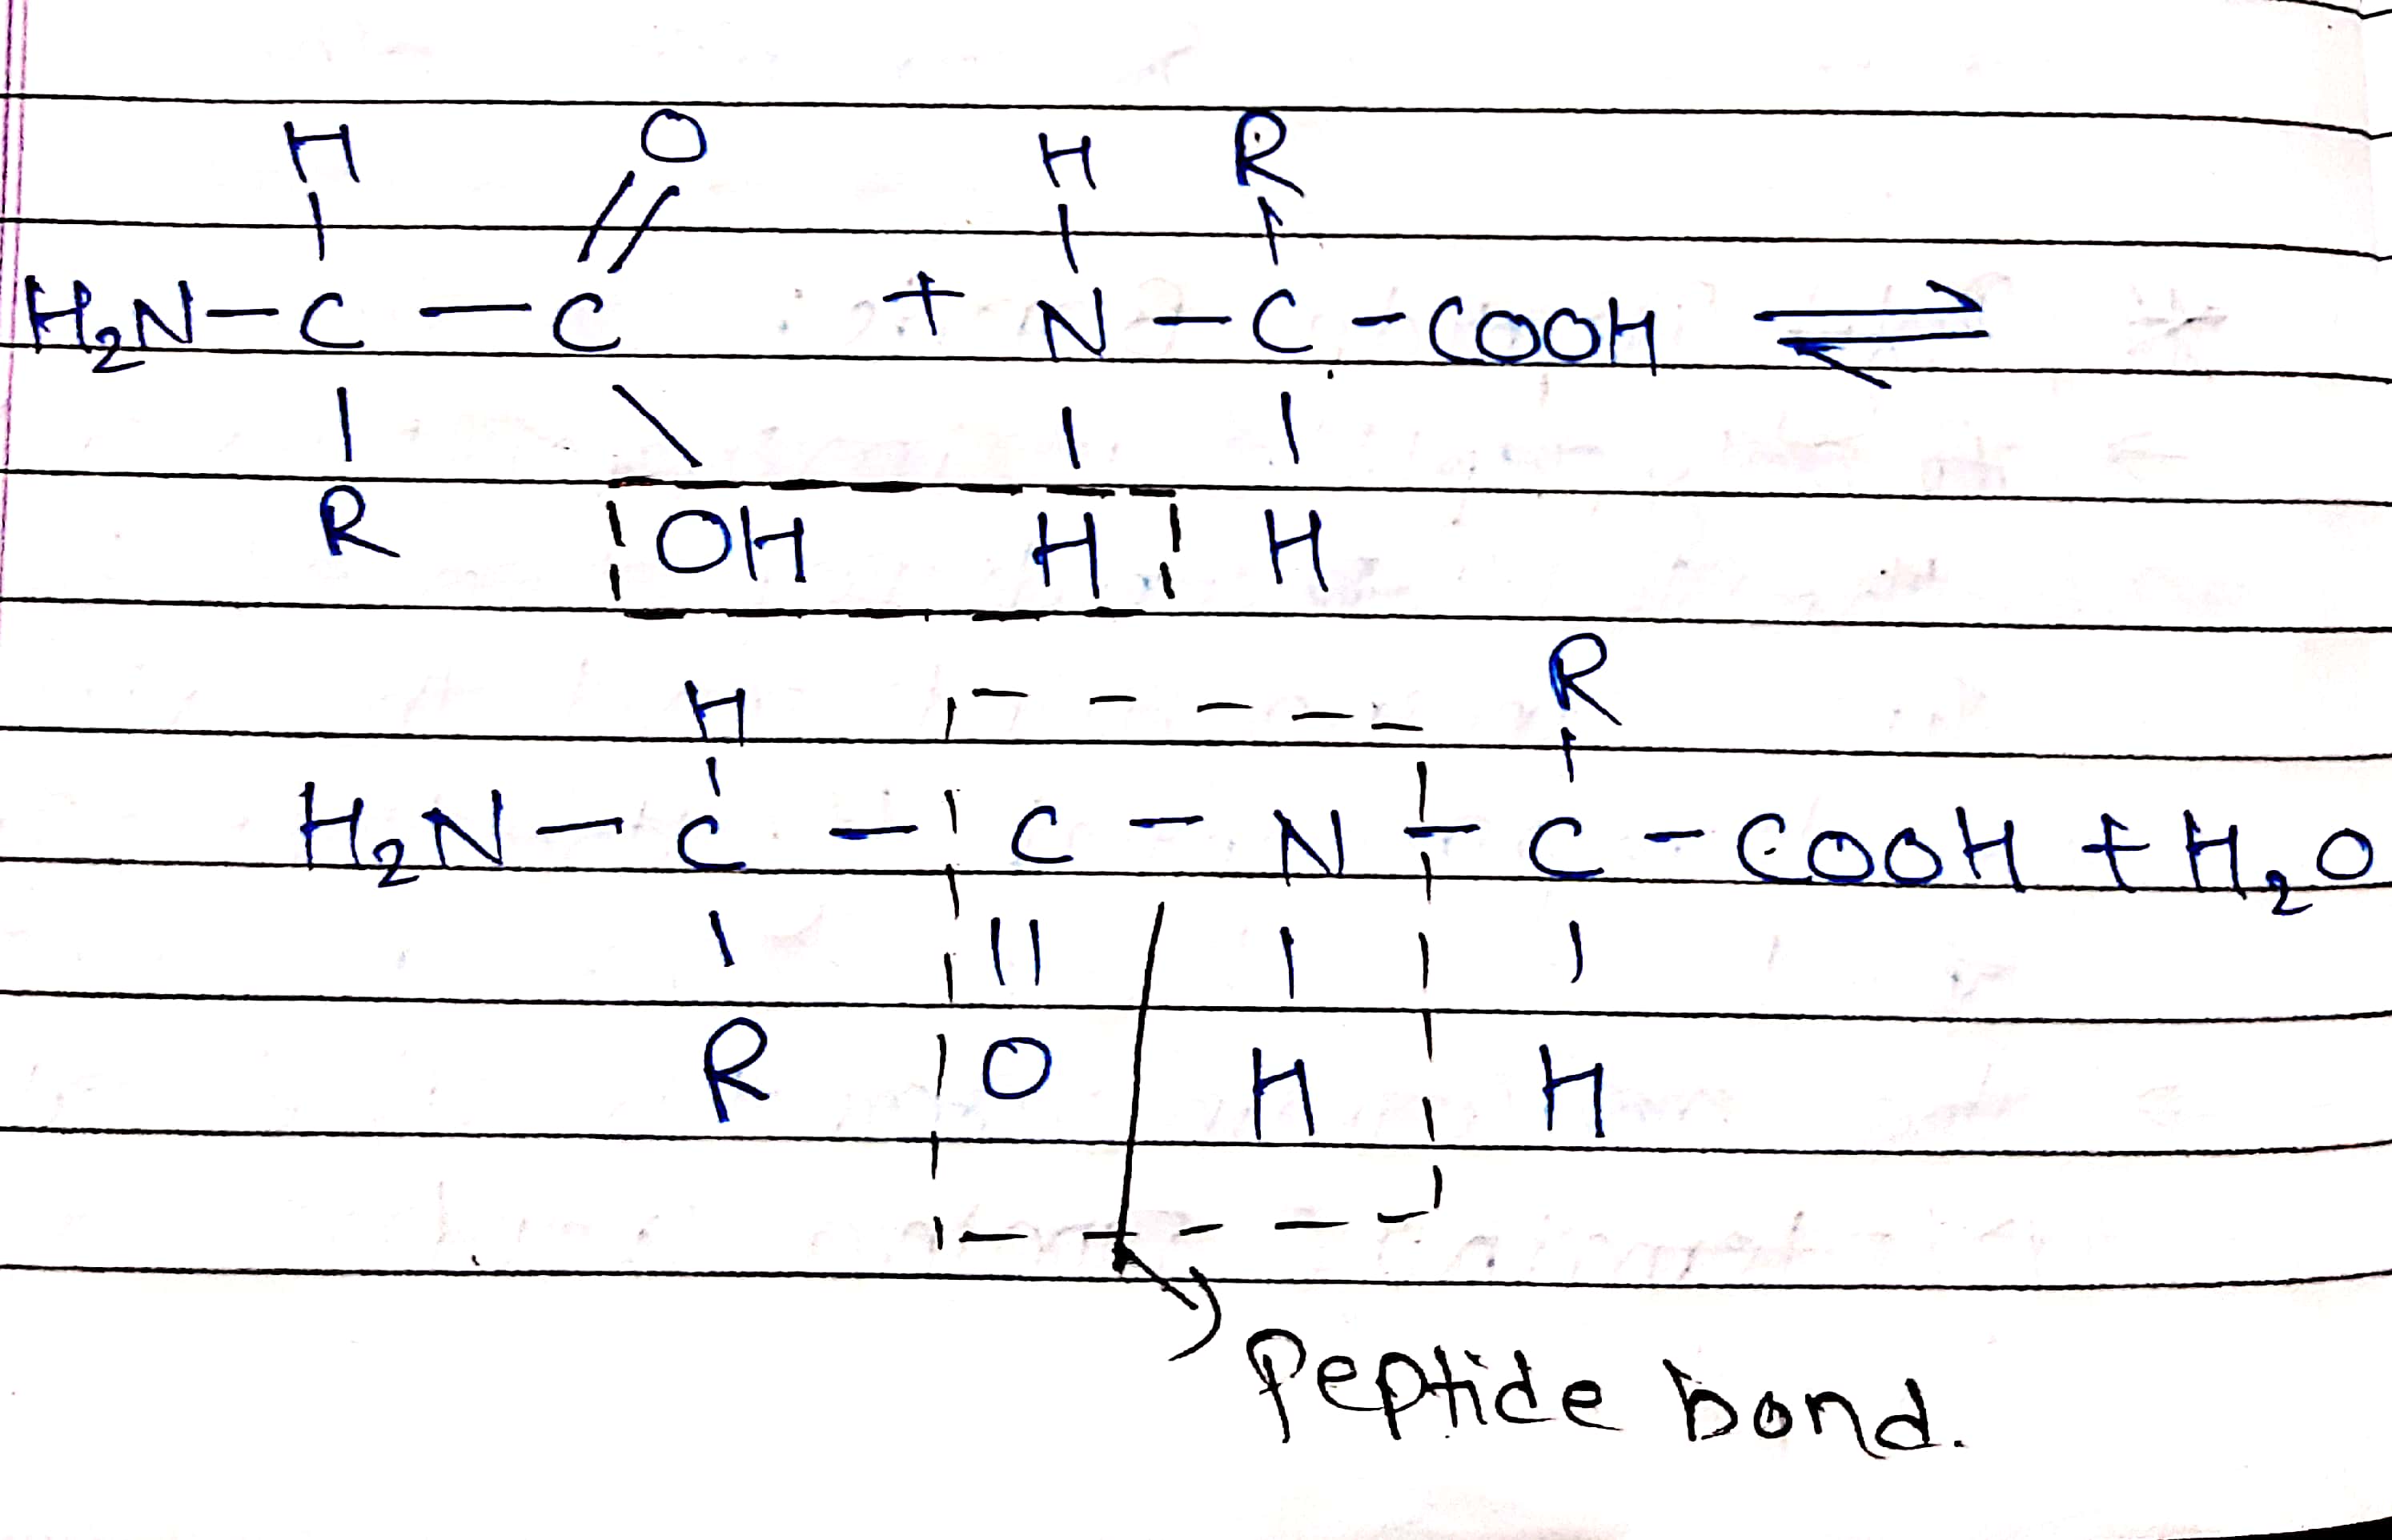 H O H R
H₂N - C - C + N - C - COOH ⇌
R OH H H
H R
H₂N - C - C - N - C - COOH + H₂O
R O H H
Peptide bond.